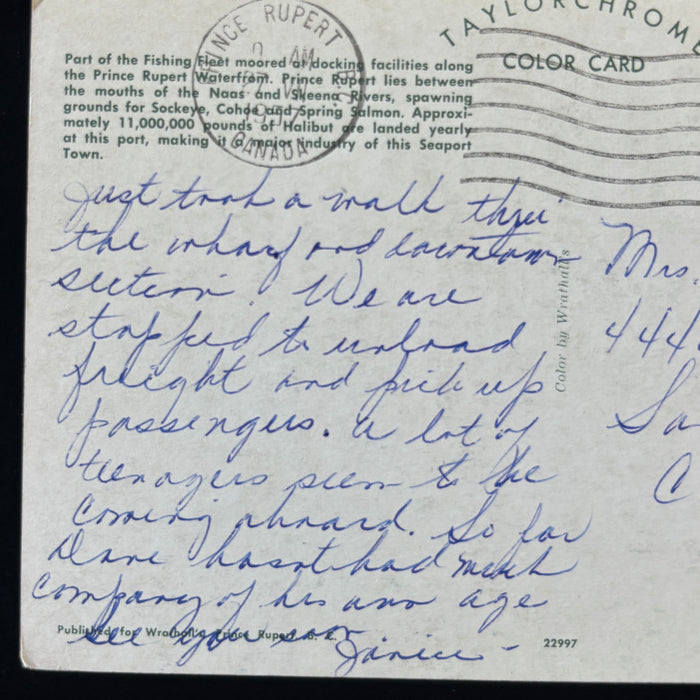 PRINCE RUPERT B.C.
AM
1957
CANADA
TAYLORCHROME
COLOR CARD
Part of the Fishing Fleet moored at docking facilities along
the Prince Rupert Waterfront. Prince Rupert lies between
the mouths of the Naas and Skeena Rivers, spawning
grounds for Sockeye, Cohoe and Spring Salmon. Approxi-
mately 11,000,000 pounds of Halibut are landed yearly
at this port, making it a major industry of this Seaport
Town.
Just took a walk thru
the wharf and downtown
section. We are
stopped to unload
freight and pick up
passengers. A lot of
teenagers seem to be
coming aboard. So far
Dave hasn't had much
company of his own age
See you soon
Janice -
Color by Wrathall's
Mrs.
444
Sa
C
Published for Wrathall's Prince Rupert, B. C.
22997